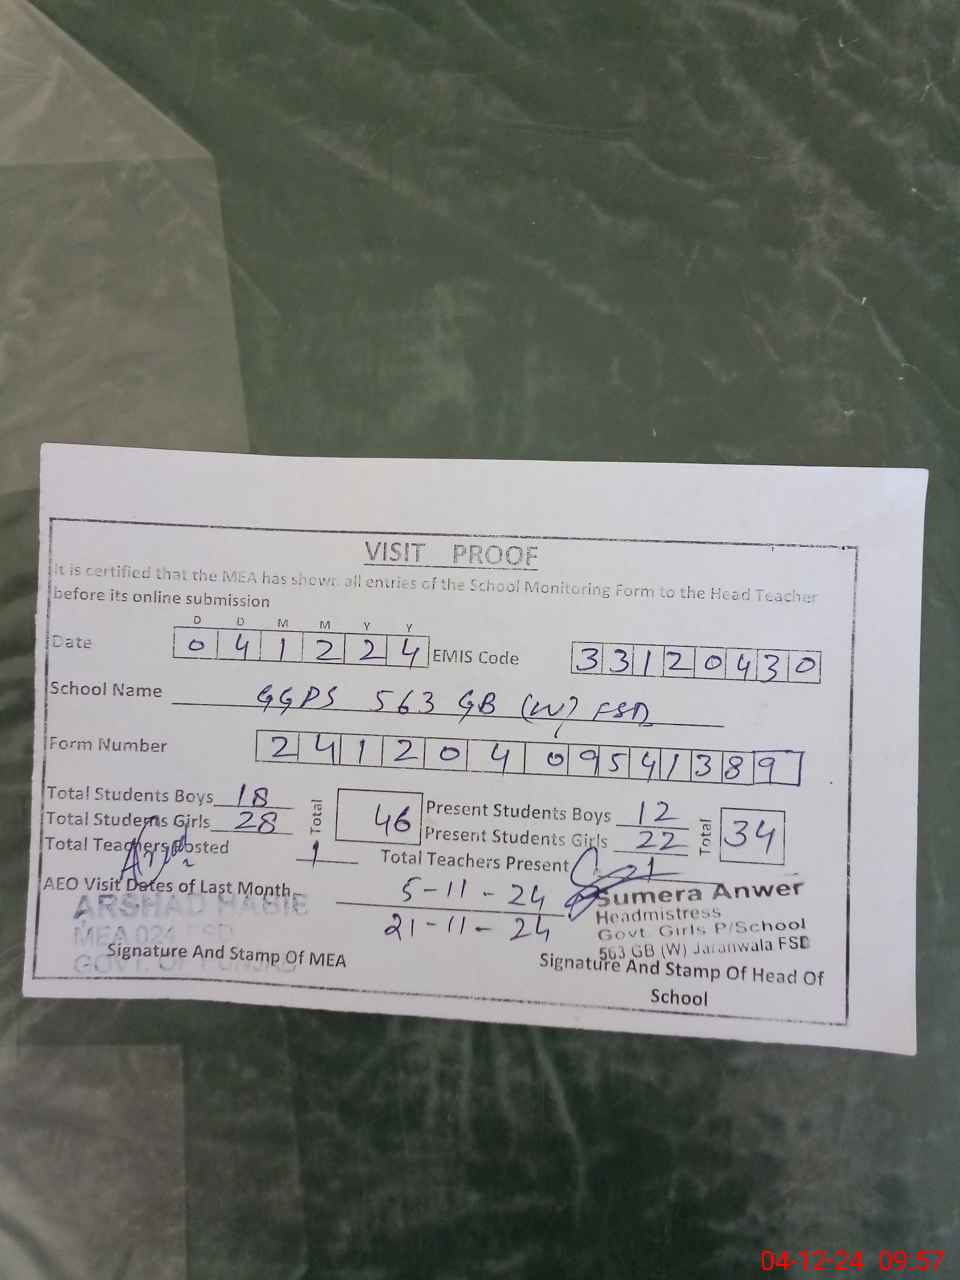 VISIT PROOF
It is certified that the MEA has shown all entries of the School Monitoring Form to the Head Teacher
before its online submission
D D M M Y Y
Date 0 4 1 2 2 4 EMIS Code 3 3 1 2 0 4 3 0
School Name GGPS 563 GB (W) FSD
Form Number 2 4 1 2 0 4 0 9 5 4 1 3 8 9
Total Students Boys 18 Total 46 Present Students Boys 12 Total 34
Total Students Girls 28 Present Students Girls 22
Total Teachers Posted 1 Total Teachers Present 1
AEO Visit Dates of Last Month 5-11-24
21-11-24
ARSHAD HABIB
MEA 024 FSD
GOVT. OF PUNJAB
Signature And Stamp Of MEA
Sumera Anwer
Headmistress
Govt. Girls P/School
563 GB (W) Jaranwala FSD
Signature And Stamp Of Head Of
School
04-12-24 09:57